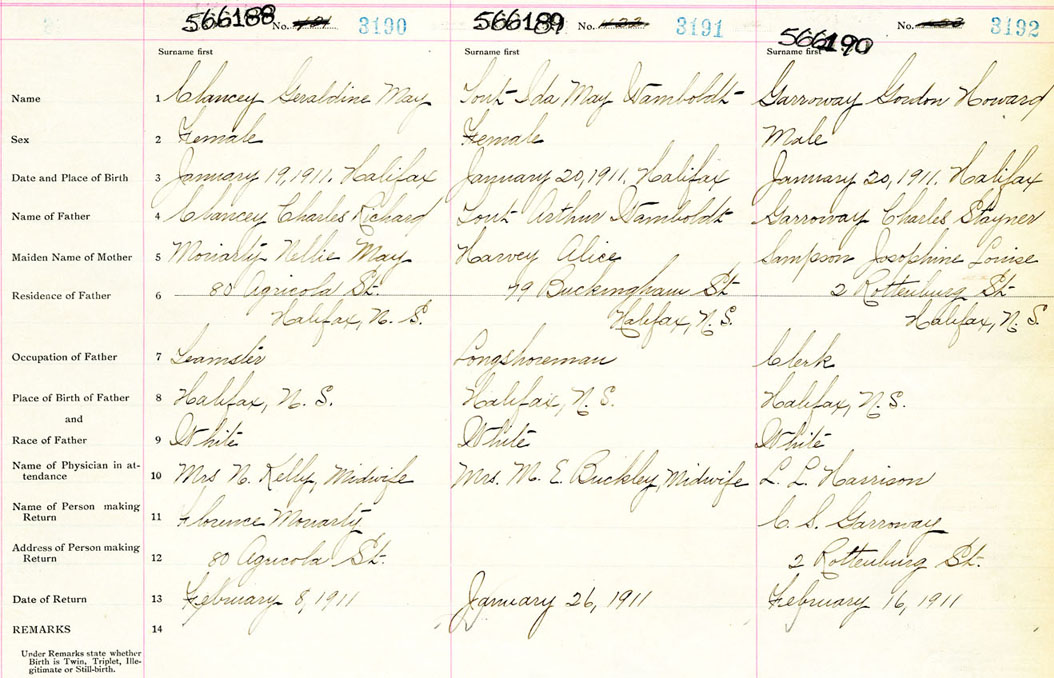 566188 No. 3190 566189 No. 3191 566190 No. 3192
Surname first Surname first Surname first
Name 1 Clancey Geraldine May Tout Ida May Wamboldt Garroway Gordon Howard
Sex 2 Female Female Male
Date and Place of Birth 3 January 19, 1911. Halifax January 20, 1911. Halifax January 20, 1911. Halifax
Name of Father 4 Clancey Charles Richard Tout Arthur Wamboldt Garroway Charles Stayner
Maiden Name of Mother 5 Moriarty Nellie May Harvey Alice Sampson Josophine Louise
Residence of Father 6 80 Agricola St. 79 Buckingham St 2 Rottenburg St.
Halifax, N. S. Halifax, N. S. Halifax, N. S.
Occupation of Father 7 Teamster Longshoreman Clerk
Place of Birth of Father 8 Halifax, N. S. Halifax, N. S. Halifax, N. S.
and
Race of Father 9 White White White
Name of Physician in at-
tendance 10 Mrs N. Kelly, Midwife Mrs. M. E. Buckley, Midwife L. L. Harrison
Name of Person making
Return 11 Florence Moriarty C. S. Garroway
Address of Person making
Return 12 80 Agricola St. 2 Rottenburg St.
Date of Return 13 February 8, 1911 January 26, 1911 February 16, 1911
REMARKS 14
Under Remarks state whether
Birth is Twin, Triplet, Ille-
gitimate or Still-birth.